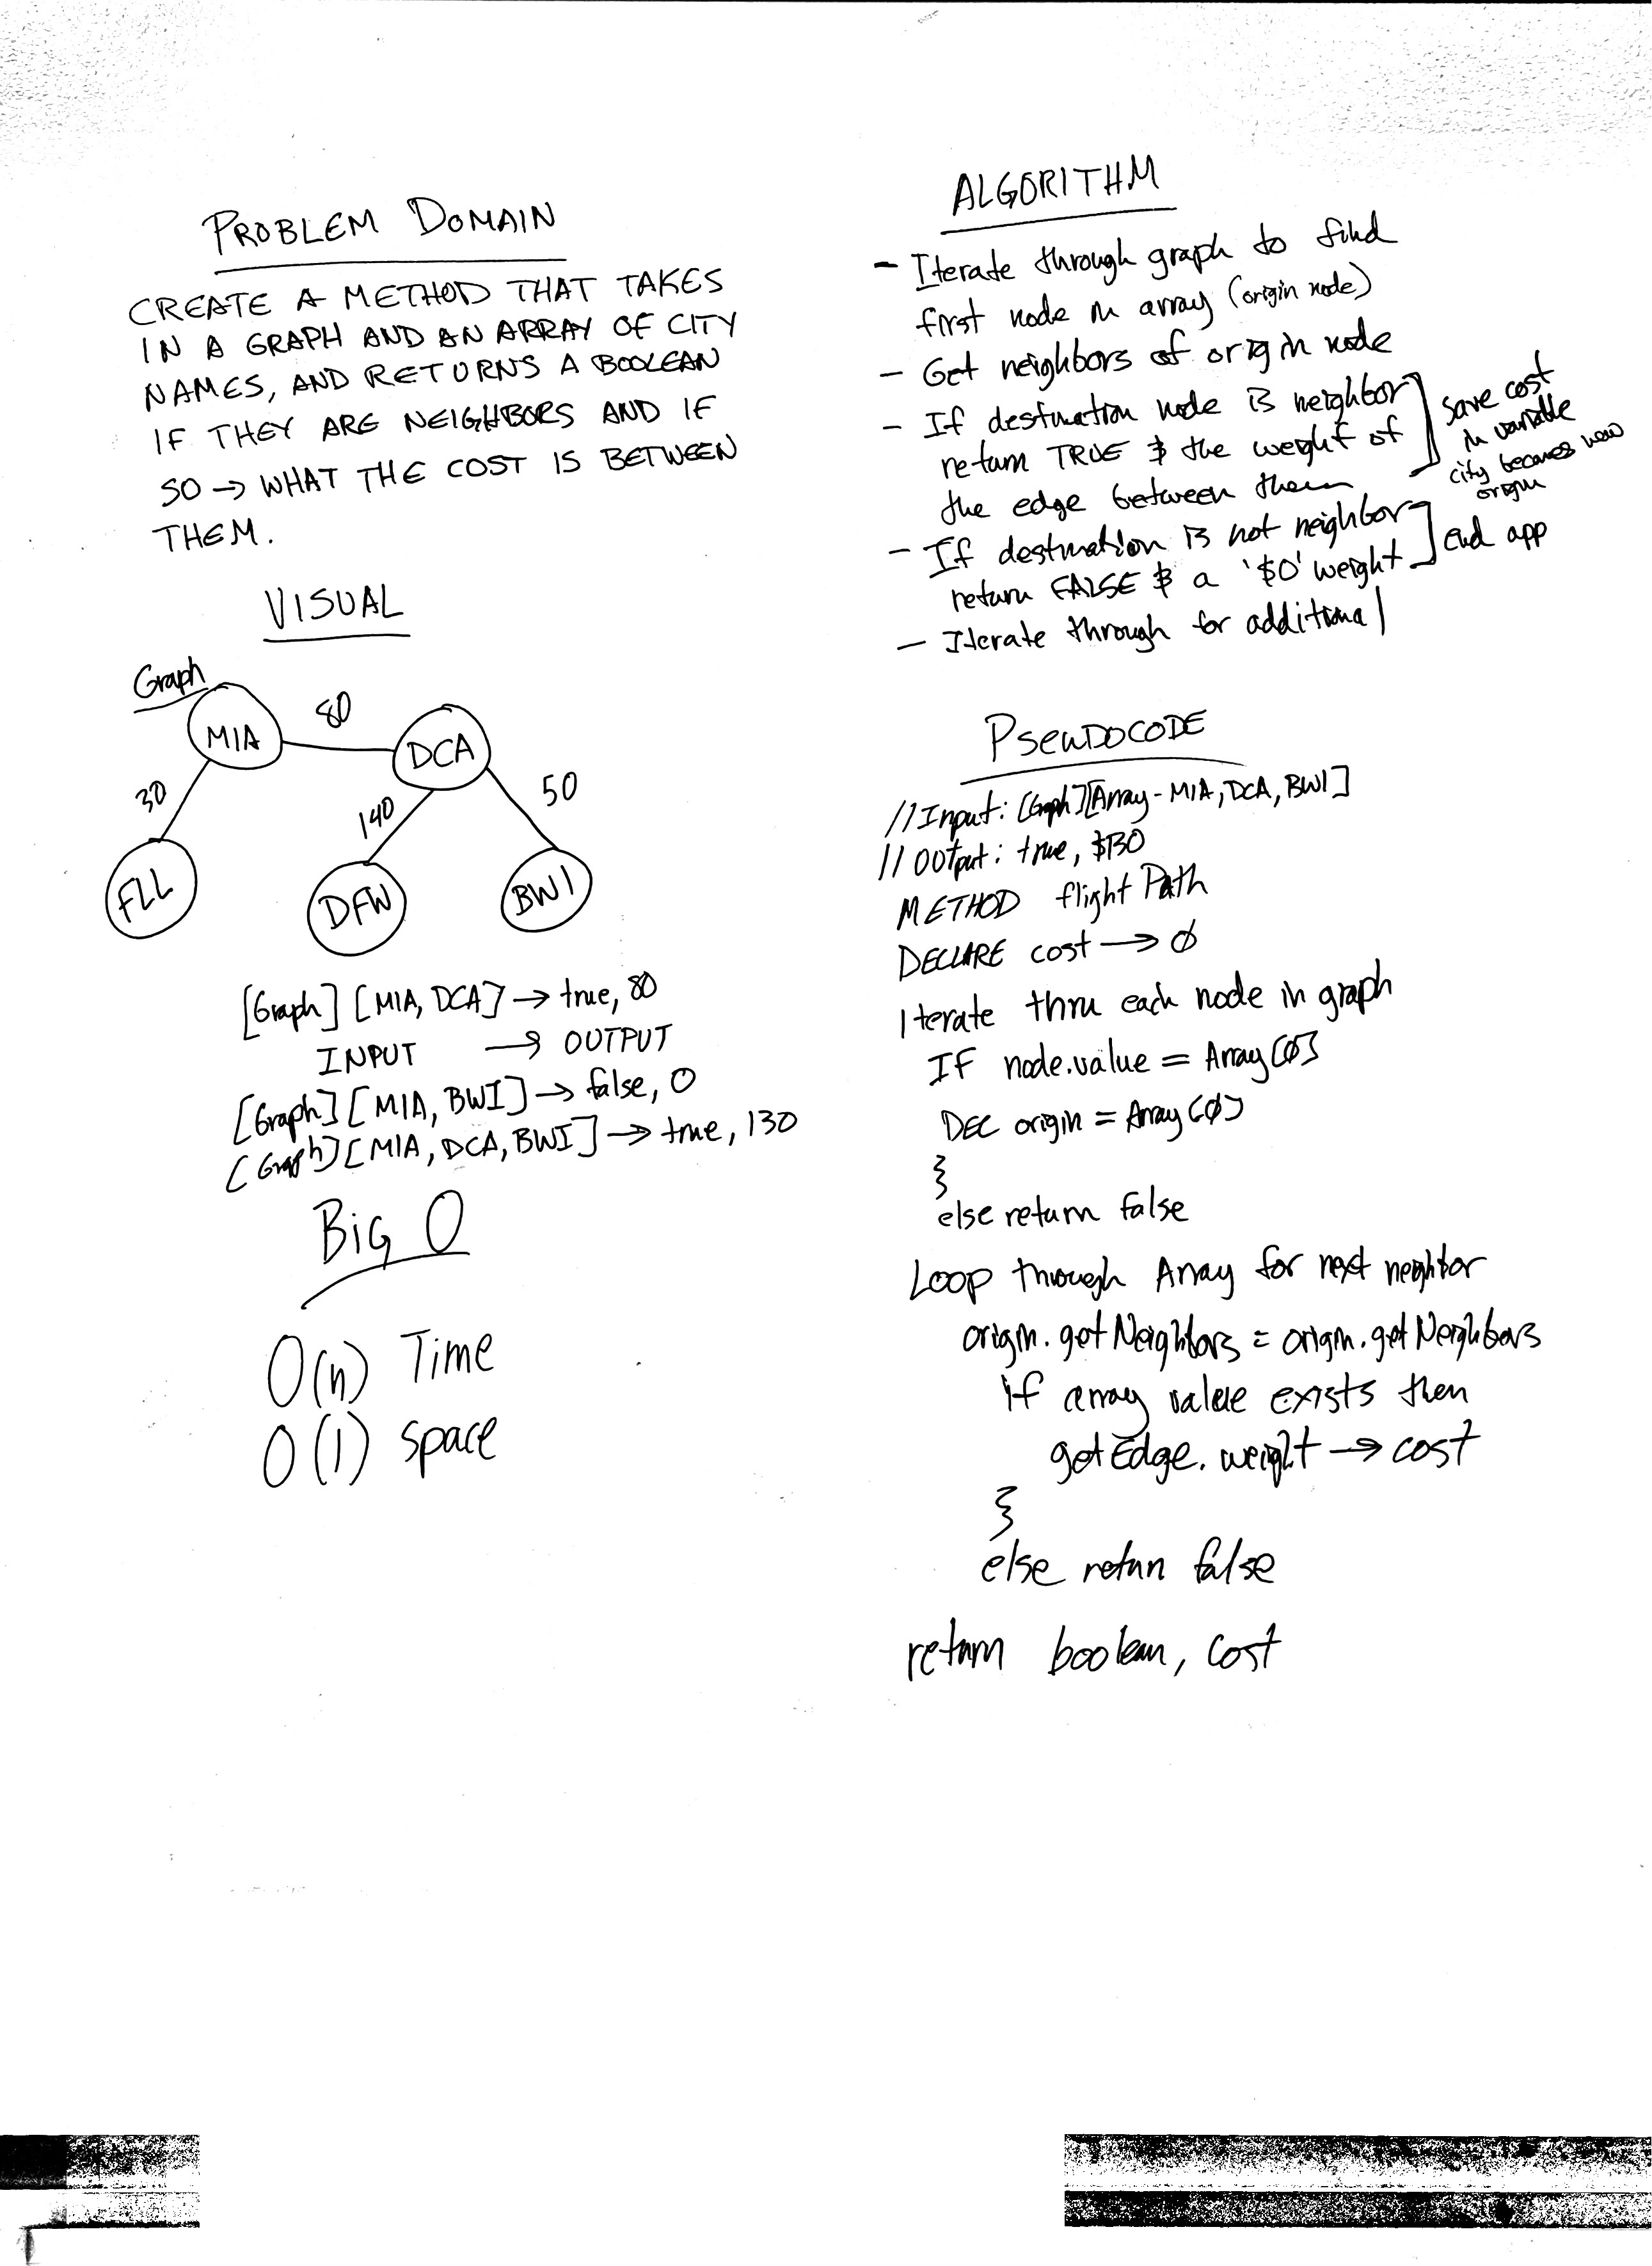 PROBLEM DOMAIN
CREATE A METHOD THAT TAKES
IN A GRAPH AND AN ARRAY OF CITY
NAMES, AND RETURNS A BOOLEAN
IF THEY ARE NEIGHBORS AND IF
SO → WHAT THE COST IS BETWEEN
THEM.
VISUAL
Graph
MIA
80
DCA
30
140
50
FLL
DFW
BWI
[Graph] [MIA, DCA] → true, 80
INPUT → OUTPUT
[Graph] [MIA, BWI] → false, 0
[Graph] [MIA, DCA, BWI] → true, 130
Big O
O(n) Time
O(1) space
ALGORITHM
- Iterate through graph to find
first node in array (origin node)
- Get neighbors of origin node
- If destination node is neighbor
return TRUE & the weight of
the edge between them
save cost
in variable
city becomes new
origin
- If destination is not neighbor
return FALSE & a '$0' weight
end app
- Iterate through for additional
PSEUDOCODE
//Input: [Graph][Array - MIA, DCA, BWI]
//Output: true, $130
METHOD flight Path
DECLARE cost → 0
Iterate thru each node in graph
IF node.value = Array[0]
DEC origin = Array[0]
}
else return false
Loop through Array for next neighbor
origin.getNeighbors = origin.getNeighbors
if array value exists then
getEdge.weight → cost
}
else return false
return boolean, cost